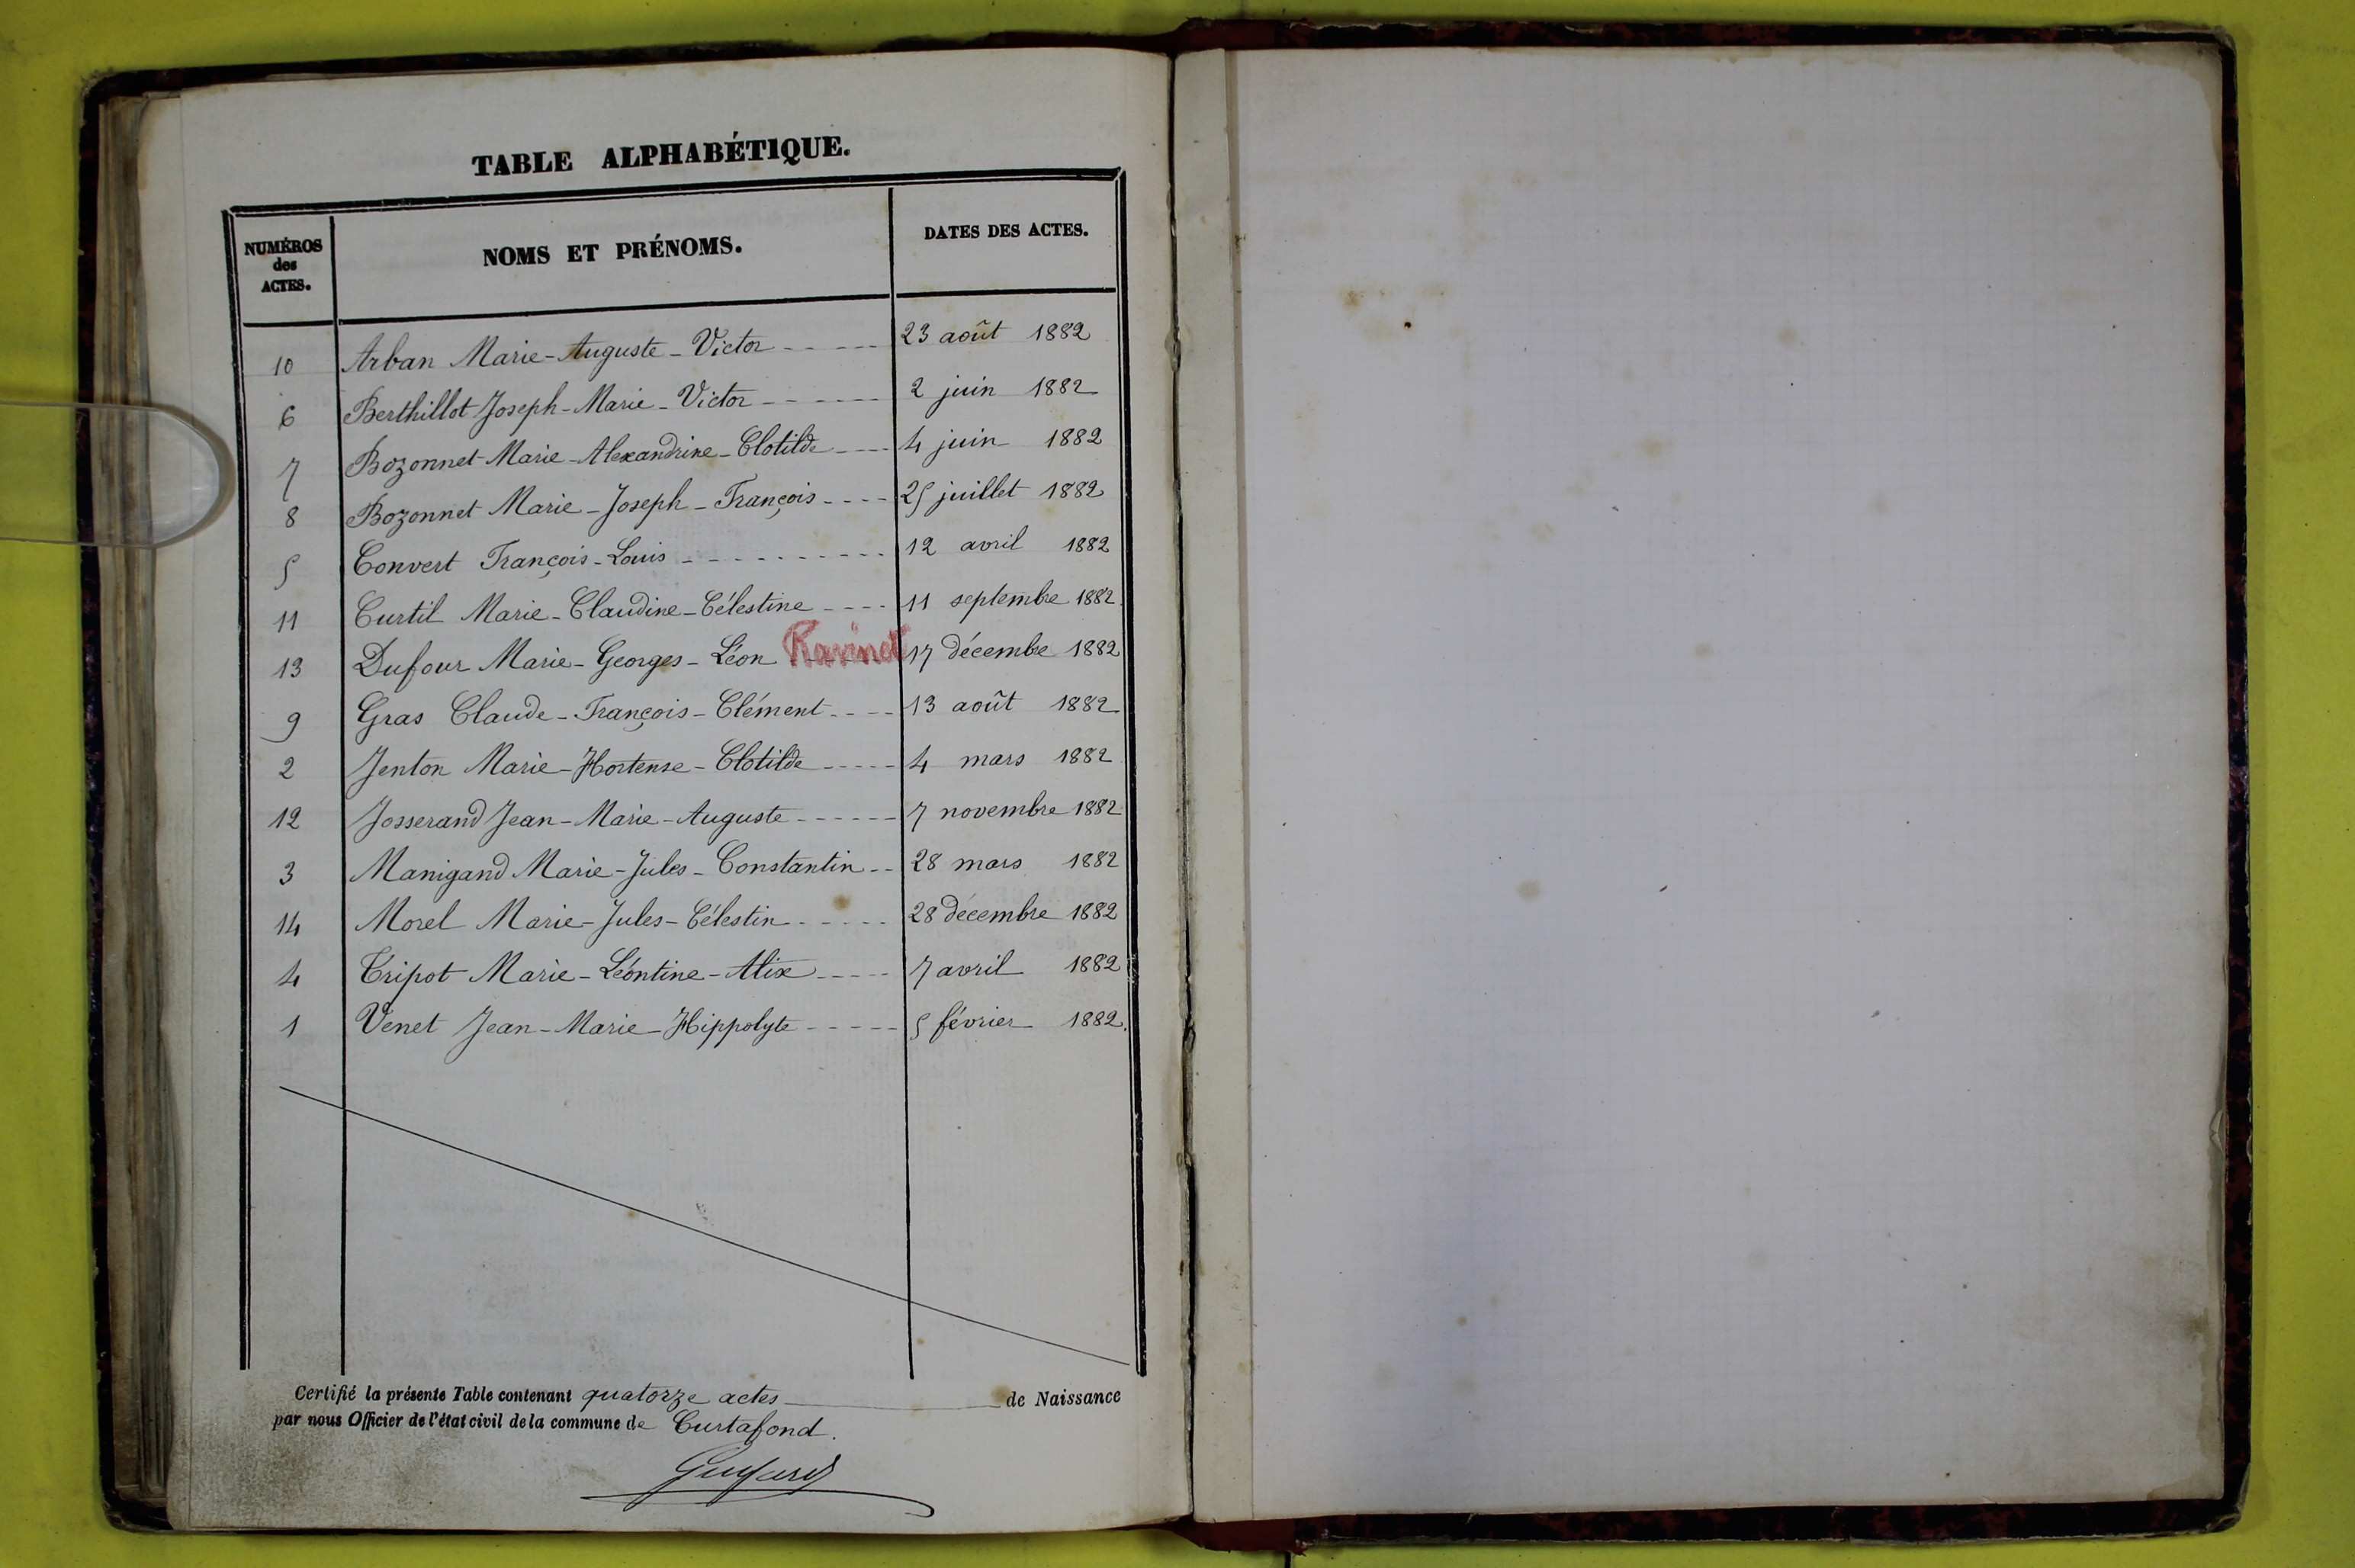 TABLE ALPHABÉTIQUE.
NUMÉROS des ACTES. NOMS ET PRÉNOMS. DATES DES ACTES.
10 Arban Marie-Auguste-Victor 23 août 1882
6 Berthillot Joseph-Marie-Victor 2 juin 1882
7 Bozonnet Marie-Alexandrine-Clotilde 4 juin 1882
8 Bozonnet Marie-Joseph-François 25 juillet 1882
5 Convert François-Louis 12 avril 1882
11 Curtil Marie-Claudine-Célestine 11 septembre 1882
13 Dufour Marie-Georges-Léon Ravinet 17 décembre 1882
9 Gras Claude-François-Clément 13 août 1882
2 Jenton Marie-Hortense-Clotilde 4 mars 1882
12 Josserand Jean-Marie-Auguste 7 novembre 1882
3 Manigand Marie-Jules-Constantin 28 mars 1882
14 Morel Marie-Jules-Célestin 28 décembre 1882
4 Tripot Marie-Léontine-Alix 7 avril 1882
1 Venet Jean-Marie-Hippolyte 5 février 1882.
Certifié la présente Table contenant quatorze actes de Naissance
par nous Officier de l'état civil de la commune de Curtafond.